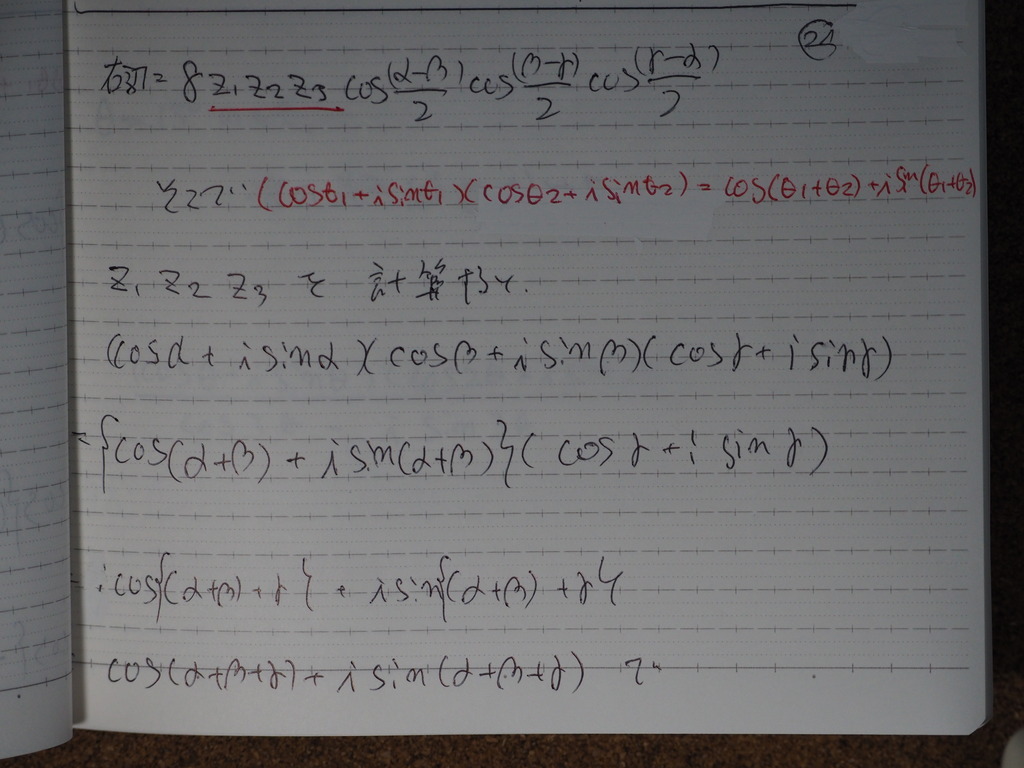 ㉓
右辺 = 8 z₁ z₂ z₃ cos (α-β)/2 cos (β-γ)/2 cos (γ-α)/2
ここで (cosθ₁ + i sinθ₁)(cosθ₂ + i sinθ₂) = cos(θ₁+θ₂) + i sin(θ₁+θ₂)
z₁ z₂ z₃ を 計算すると.
(cosα + i sinα)(cosβ + i sinβ)(cosγ + i sinγ)
= {cos(α+β) + i sin(α+β)}(cosγ + i sinγ)
cos{(α+β)+γ} + i sin{(α+β)+γ}
cos(α+β+γ) + i sin(α+β+γ) で